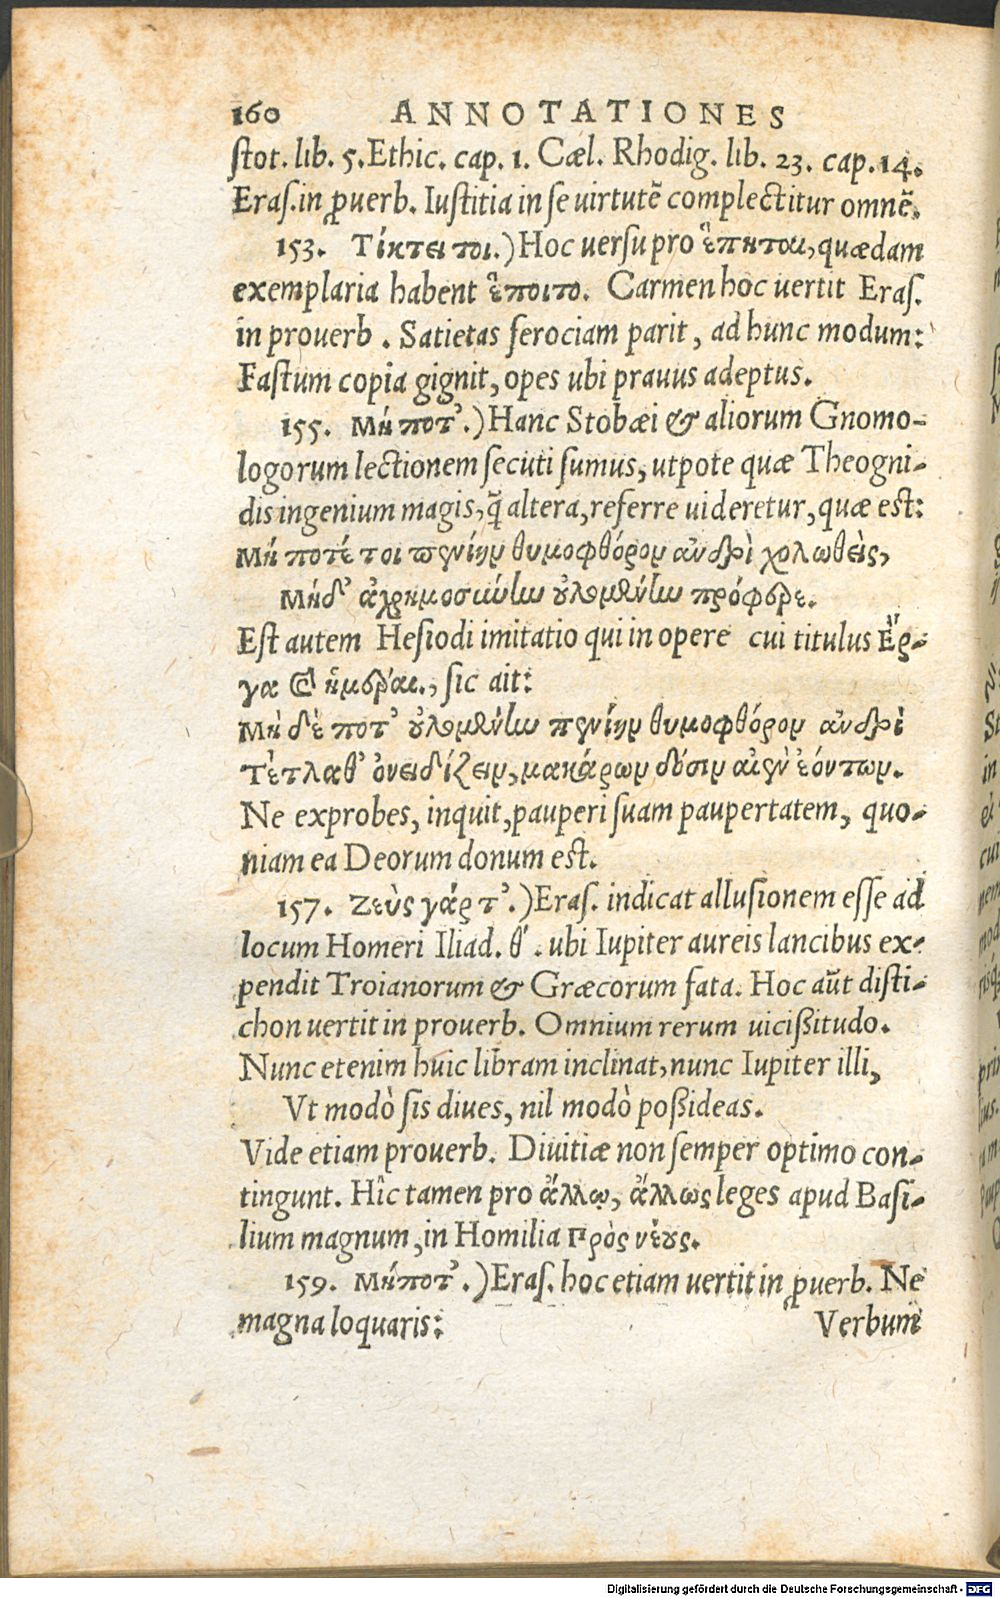 160 ANNOTATIONES
ſtot. lib. 5. Ethic. cap. 1. Cæl. Rhodig. lib. 23. cap. 14.
Eraſ. in ꝓuerb. Iuſtitia in ſe uirtutẽ complectitur omnẽ.
153. Τίκτει τοι.) Hoc uerſu pro ἕπηται, quædam
exemplaria habent ἕποιτο. Carmen hoc uertit Eraſ.
in prouerb. Satietas ferociam parit, ad hunc modum:
Faſtum copia gignit, opes ubi prauus adeptus.
155. Μήποτ'.) Hanc Stobæi & aliorum Gnomo-
logorum lectionem ſecuti ſumus, utpote quæ Theogni-
dis ingenium magis, ꝗ̃ altera, referre uideretur, quæ eſt:
Μή ποτέ τοι πενίην θυμοφθόρον ἀνδρὶ χολωθεὶς,
Μηδ' ἀχρημοσύνην οὐλομένην πρόφερε.
Eſt autem Heſiodi imitatio qui in opere cui titulus Ἔρ-
γα καὶ ἡμέραι., ſic ait:
Μηδέ ποτ' οὐλομένην πενίην θυμοφθόρον ἀνδρὶ
Τέτλαθ' ὀνειδίζειν, μακάρων δόσιν αἰὲν ἐόντων.
Ne exprobes, inquit, pauperi ſuam paupertatem, quo-
niam ea Deorum donum eſt.
157. Ζεὺς γάρ τ'.) Eraſ. indicat alluſionem eſſe ad
locum Homeri Iliad. θ'. ubi Iupiter aureis lancibus ex-
pendit Troianorum & Græcorum fata. Hoc aũt diſti-
chon uertit in prouerb. Omnium rerum uicißitudo.
Nunc etenim huic libram inclinat, nunc Iupiter illi,
Vt modò ſis diues, nil modò poßideas.
Vide etiam prouerb. Diuitiæ non ſemper optimo con-
tingunt. Hîc tamen pro ἄλλῳ, ἄλλως leges apud Baſi-
lium magnum, in Homilia Πρὸς νέους.
159. Μήποτ'.) Eraſ. hoc etiam uertit in ꝓuerb. Ne
magna loquaris: Verbum
Digitalisierung gefördert durch die Deutsche Forschungsgemeinschaft - DFG